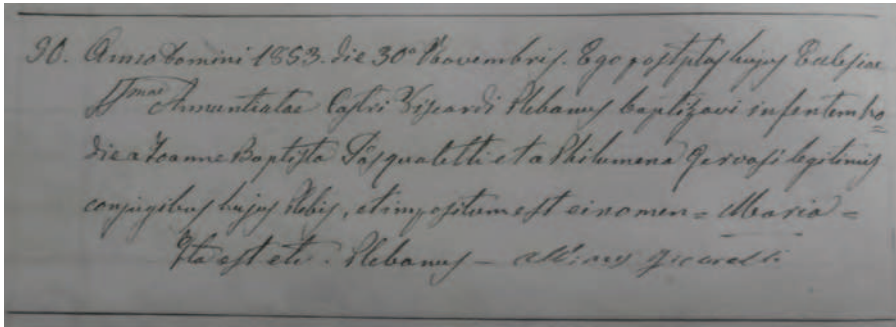 90. Anno Domini 1853. die 30ª Novembris. Ego postptus hujus Ecclesiae
SSmae Annuntiatae Castri Viscardi Plebanus baptizavi infantem ho
die a Joanne Baptista Pasqualetti et a Philumena Gervasi legitimis
conjugibus hujus Plebis, et impositum est ei nomen = Maria =
Ita est etc. Plebanus —